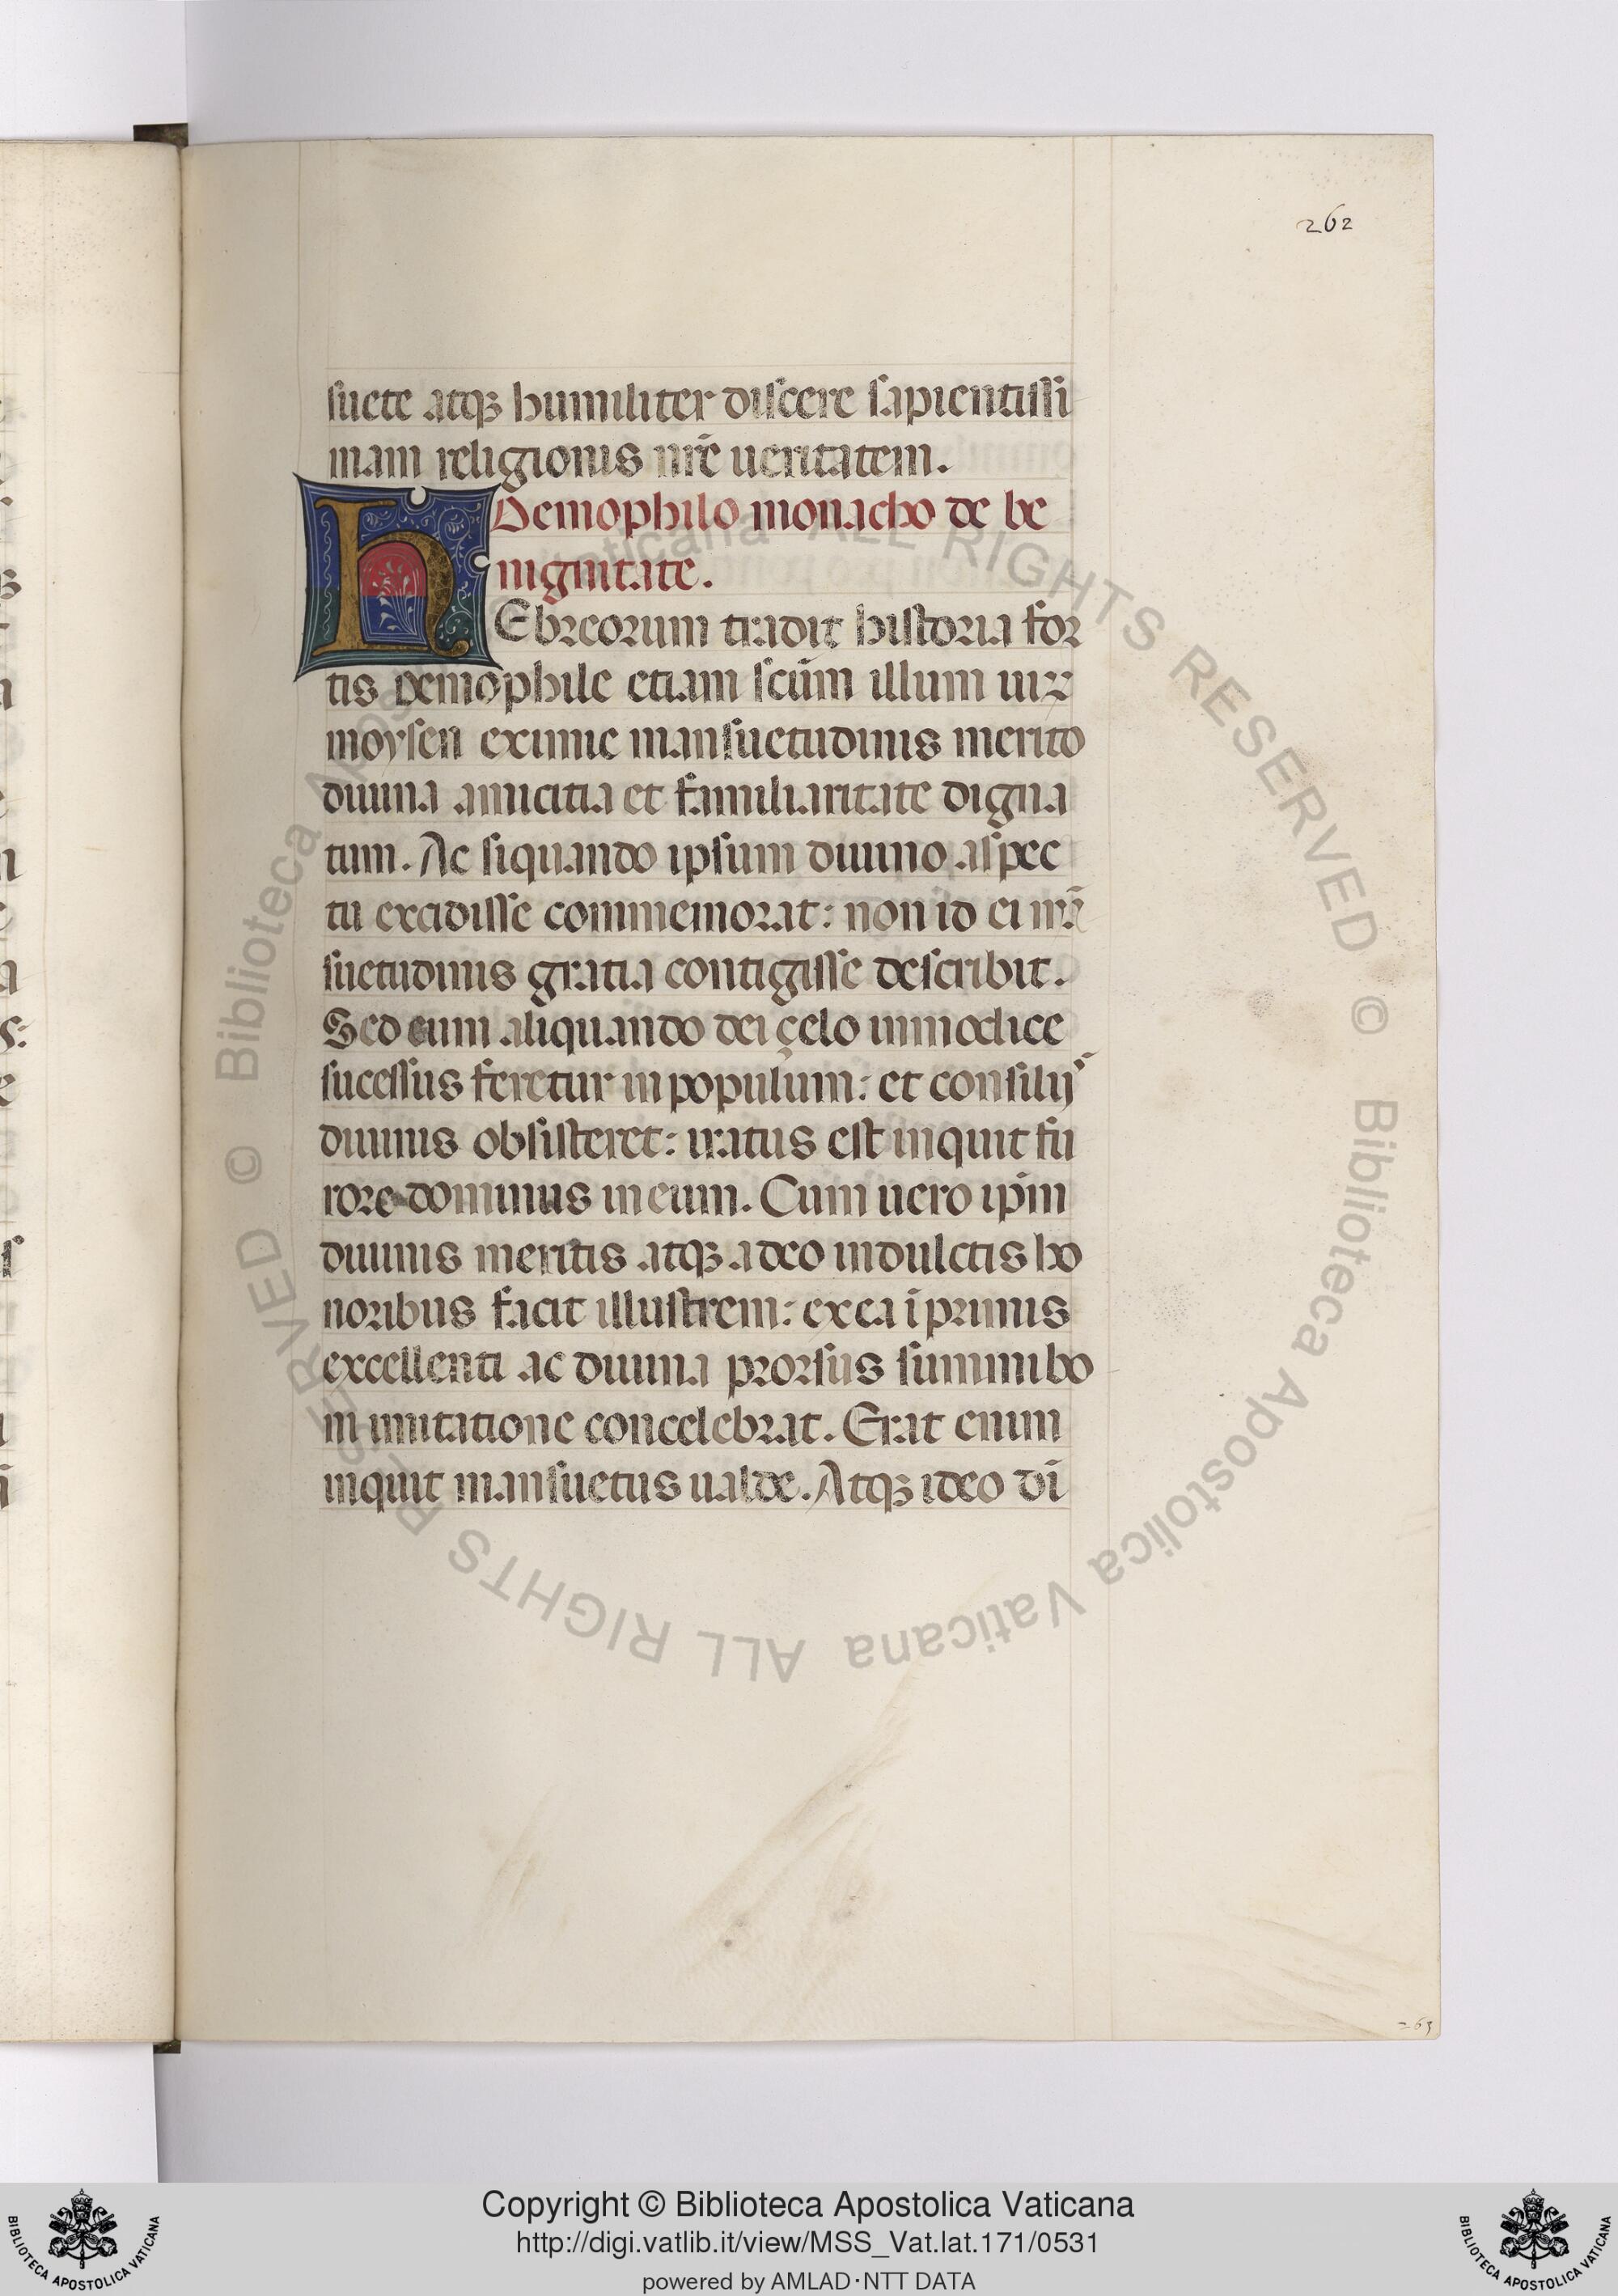 262
suete atqꝫ humiliter discere sapientissi
mam religionis nr̄e ueritatem.
Demophilo monacho de be
nignitate.
HEbreorum tradit historia for
tis Demophile etiam scūm illum uiꝝ
moysen eximie mansuetudinis merito
diuina amicitia et familiaritate digna
tum. Ac siquando ipsum diuino aspec
tu excidisse commemorat: non id ei mā
suetudinis gratia contigisse describit.
Sed eum aliquando dei çelo inmodice
sucessus feretur in populum: et consilijˢ
diuinis obsisteret: iratus est inquit fu
rore dominus in eum. Cum uero ip̄m
diuinis meritis atqꝫ a deo indulctis ho
noribus facit illustrem: ex ea īprimis
excellenti ac diuina prorsus summi bo
ni imitatione concelebrat. Erat enim
inquit mansuetus ualde. Atqꝫ ideo dī
263
© Biblioteca Apostolica Vaticana ALL RIGHTS RESERVED © Biblioteca Apostolica Vaticana ALL RIGHTS RESERVED
Copyright © Biblioteca Apostolica Vaticana
http://digi.vatlib.it/view/MSS_Vat.lat.171/0531
powered by AMLAD·NTT DATA
BIBLIOTECA APOSTOLICA VATICANA
BIBLIOTECA APOSTOLICA VATICANA